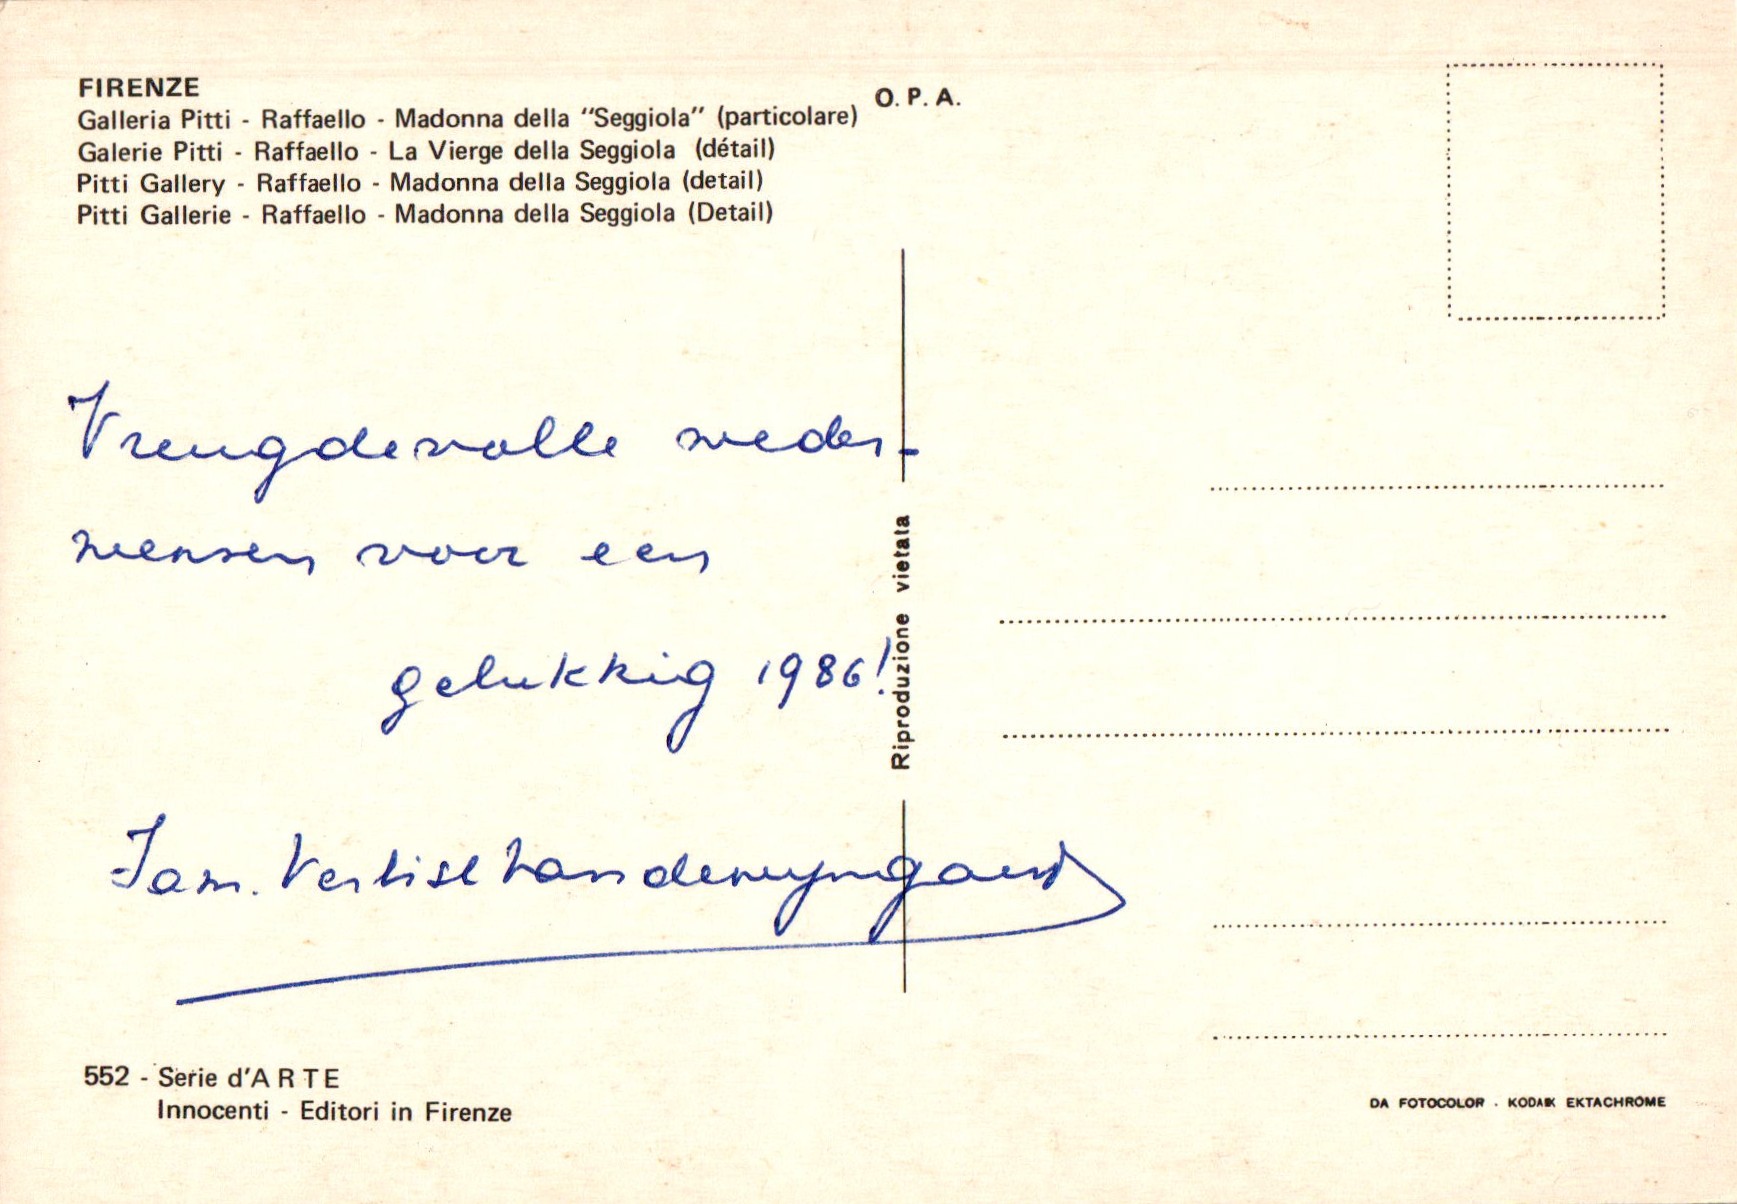 FIRENZE
Galleria Pitti - Raffaello - Madonna della "Seggiola" (particolare)
Galerie Pitti - Raffaello - La Vierge della Seggiola (détail)
Pitti Gallery - Raffaello - Madonna della Seggiola (detail)
Pitti Gallerie - Raffaello - Madonna della Seggiola (Detail)
O. P. A.
Vreugdevolle weder-
wensen voor een
gelukkig 1986!
Fam.
Riproduzione vietata
552 - Serie d'ARTE
Innocenti - Editori in Firenze
DA FOTOCOLOR · KODAK EKTACHROME